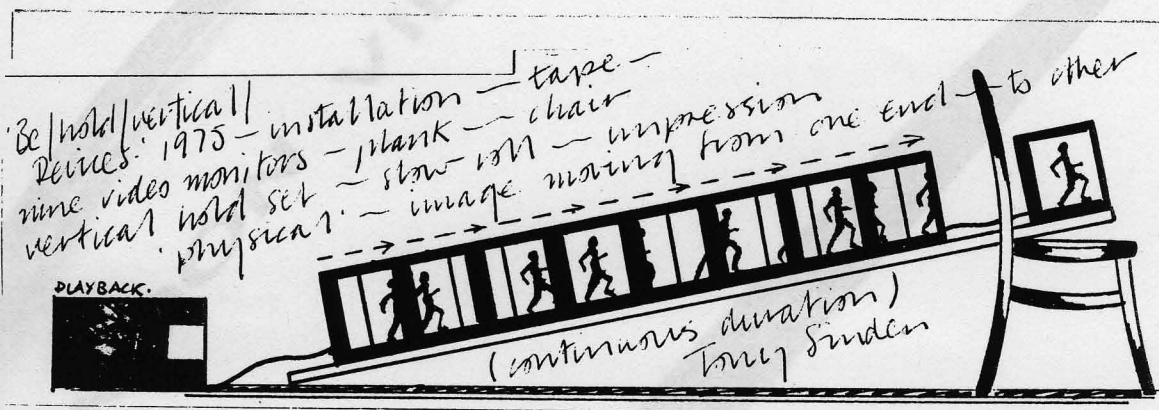 'Be/hold/vertical/
Devices.' 1975 – installation – tape –
nine video monitors – plank – chair
vertical hold set – slow roll – impression
'physical' – image moving from one end – to other
PLAYBACK.
(continuous duration)
Tony Sinden